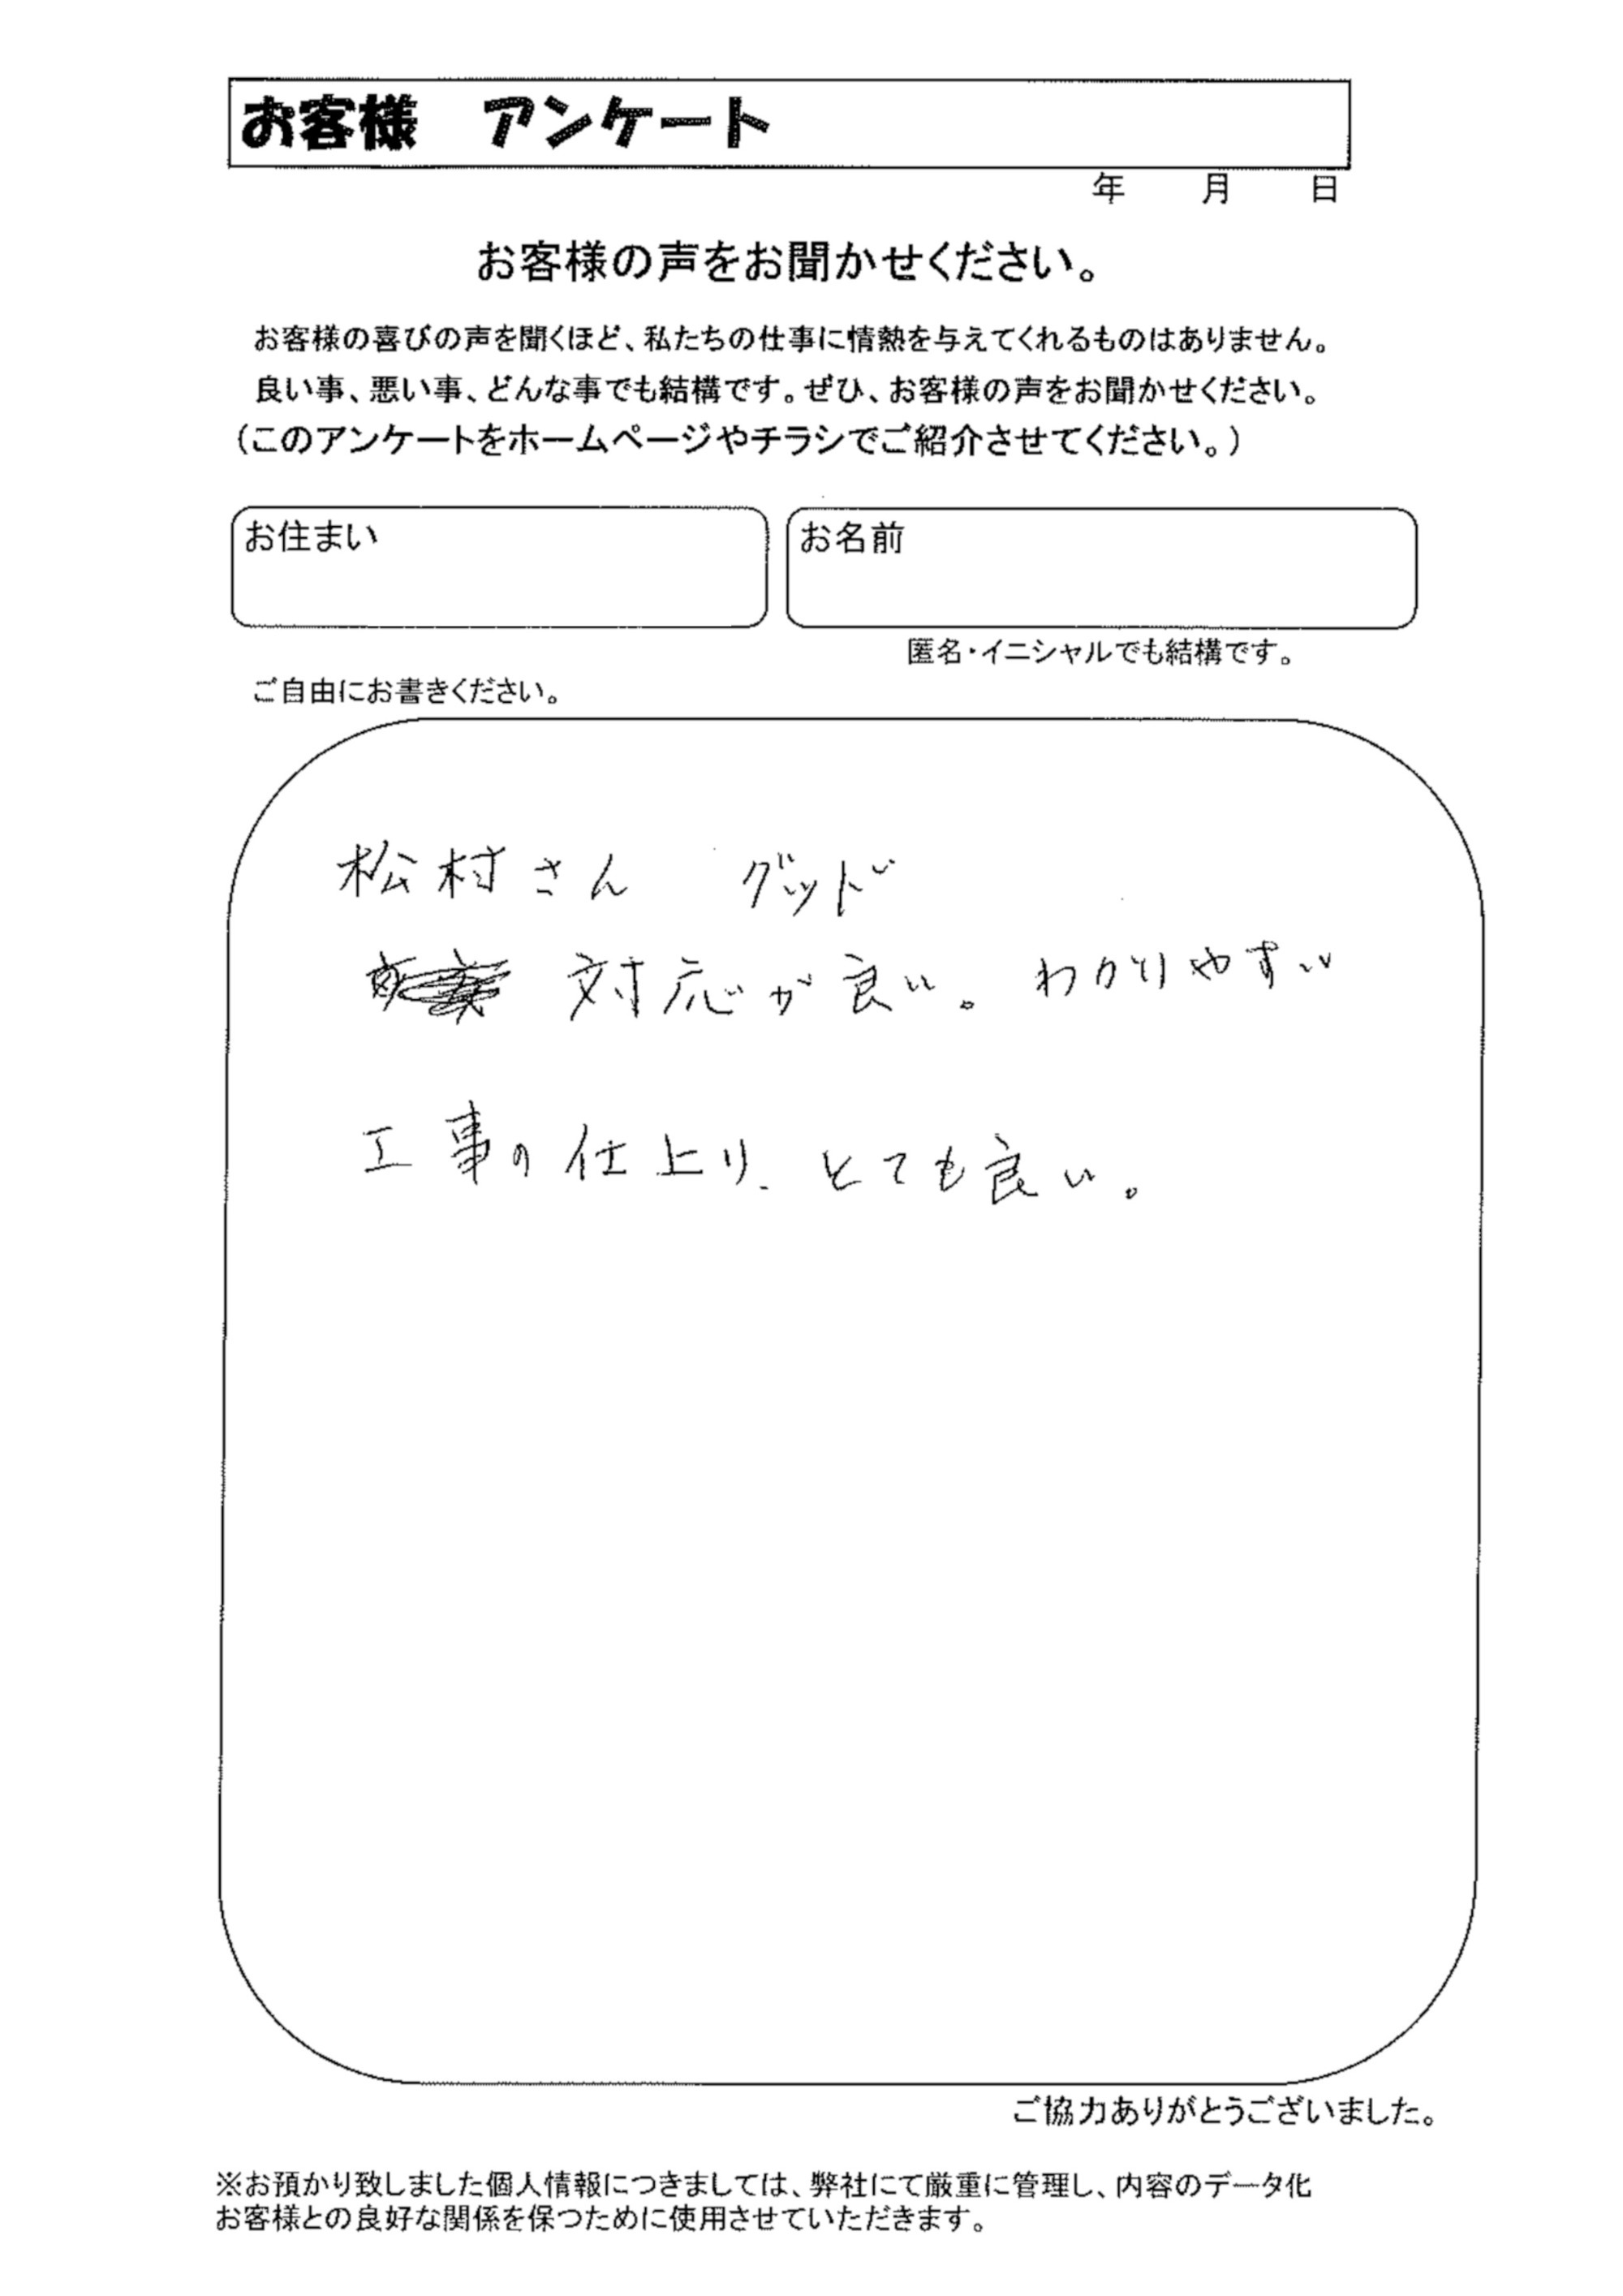 お客様　アンケート
年　月　日
お客様の声をお聞かせください。
お客様の喜びの声を聞くほど、私たちの仕事に情熱を与えてくれるものはありません。
良い事、悪い事、どんな事でも結構です。ぜひ、お客様の声をお聞かせください。
（このアンケートをホームページやチラシでご紹介させてください。）
お住まい
お名前
匿名・イニシャルでも結構です。
ご自由にお書きください。
松村さん　グッド
対応が良い。わかりやすい
工事の仕上り、とても良い。
ご協力ありがとうございました。
※お預かり致しました個人情報につきましては、弊社にて厳重に管理し、内容のデータ化
お客様との良好な関係を保つために使用させていただきます。